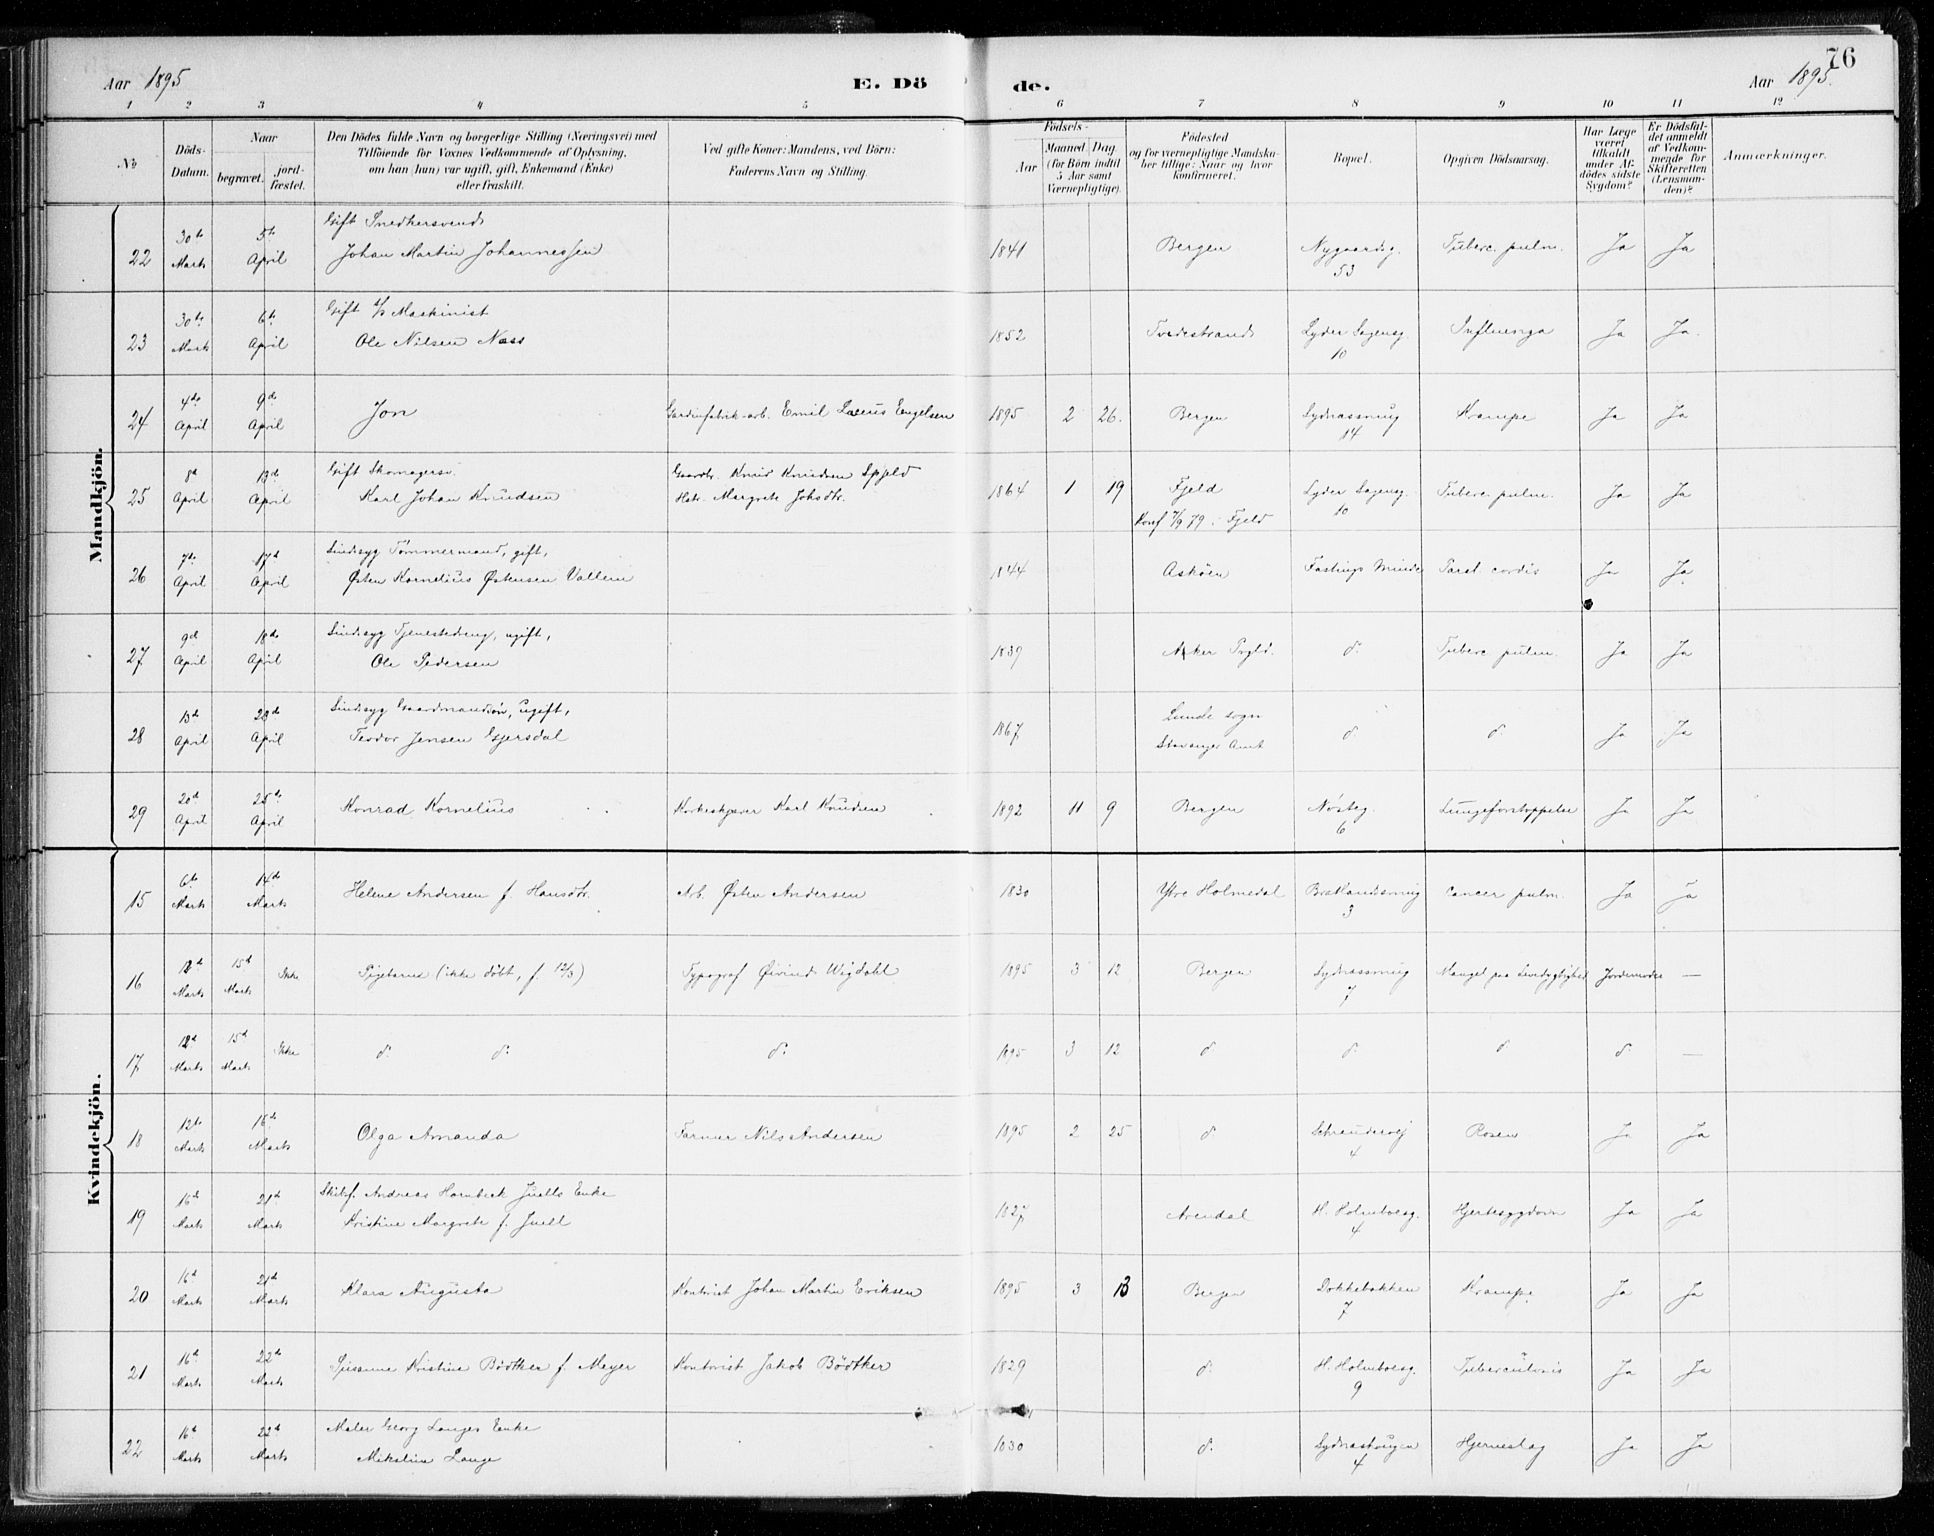 76
Aar 1895
E. Dö
de.
Aar 1895.
1 2 3 4 5 6 7 8 9 10 11 12
No
Döds-Datum.
Naar
begravet.
jord-fæstet.
Den Dödes fulde Navn og borgerlige Stilling (Næringsvei) med
Tilföiende for Voxnes Vedkommende af Oplysning,
om han (hun) var ugift, gift, Enkemand (Enke)
eller fraskilt.
Ved gifte Koner: Mandens, ved Börn:
Faderens Navn og Stilling.
Födsels-
Aar
Maaned Dag
(for Börn indtil
5 Aar samt
Værnepligtige).
Födested
og for værnepligtige Mandska-
ber tillige: Naar og hvor
konfirmeret.
Bopæl.
Opgiven Dödsaarsag.
Har Læge
været
tilkaldt
under Af-
dödes sidste
Sygdom?
Er Dödsfal-
det anmeldt
af Vedkom-
mende for
Skifteretten
(Lensman-
den)?
Anmærkninger.
Mandkjön.
22 30te Marts 5te April Gift Snedkersvend
Johan Martin Johannessen 1841 Bergen Nygaardsg. 53 Tuberc. pulm. Ja Ja
23 30te Marts 6te April Gift Maskinist
Ole Nilsen Næss 1852 Tvedestrand Lyder Sagensg. 10 Influenza Ja Ja.
24 4de April 9de April Jon Gardinfabrik-arb. Emil Engelsen 1895 2 26. Bergen Sydnæssmug 14 Krampe Ja Ja
25 8d April 13de April Gift Skomagersv.
Karl Johan Knudsen Gaardbr. Knud Knudsen
Margrete Johsdtr. 1864 1 19 Fjeld
Konf 7/9 79 i Fjeld Lyder Sagensg. 10 Tuberc. pulm. Ja Ja
26 7de April 17d April Sindssyg Tømmermand, gift,
Østen Kornelius Østensen Vallem 1844 Askøen Fastings Minde Paral. cordis Ja Ja
27 9d April 18de April Sindssyg Tjenestedreng, ugift,
Ole Pedersen 1839 Asker Prgld. d. Tuberc. pulm. Ja Ja
28 13d April 23d April Sindssyg Gaardmandssøn, ugift,
Teodor Jensen Gjersdal 1867 Lunde sogn
Stavanger Amt d d. Ja Ja
29 20d April 25de April Konrad Kornelius Korkeskjærer Karl Knudsen 1892 11 9 Bergen Nøsteg. 6 Lungeforstoppelse Ja Ja
Kvindekjön.
15 6te Marts 14d Marts Helene Andersen f. Hansdtr. Arb. Østen Andersen 1830 Ytre Holmedal 3 Cancer pulm. Ja Ja
16 12d Marts 15d Marts Ikke Pigebarn (ikke døbt, f. 12/3) Typograf Øivind Wigdahl 1895 3 12 Bergen Sydnæssmug 7 Mangel paa Levedygtighed Jordemoder —
17 12d Marts 15d Marts Ikke d. d. d. 1895 3 12 d d. d d. —
18 12te Marts 16de Marts Olga Amanda Farver Nils Andersen 1895 2 25 d 4 Rosen Ja Ja
19 16d Marts 21d Marts Skibsf. Andreas Hornbeck Juells Enke
Kristine Margrete f. Juell 1827 Arendal H. Holmboesg. 4 Hjertesygdom Ja Ja
20 16d Marts 21d Marts Klara Augusta Kontorist Johan Martin Eriksen 1895 3 13 Bergen Dokkebakken 7 Krampe Ja Ja
21 16d Marts 22de Marts Susanne Kristine Bödtker f. Meyer Kontorist Jakob Bödtker 1829 d. H. Holmboesg. 9 Tuberculosis Ja Ja
22 16d Marts 22d Marts Maler Georg Langes Enke
Mikeline Lange 1830 d. Sydnæshaugen 4 Hjerneslag Ja Ja